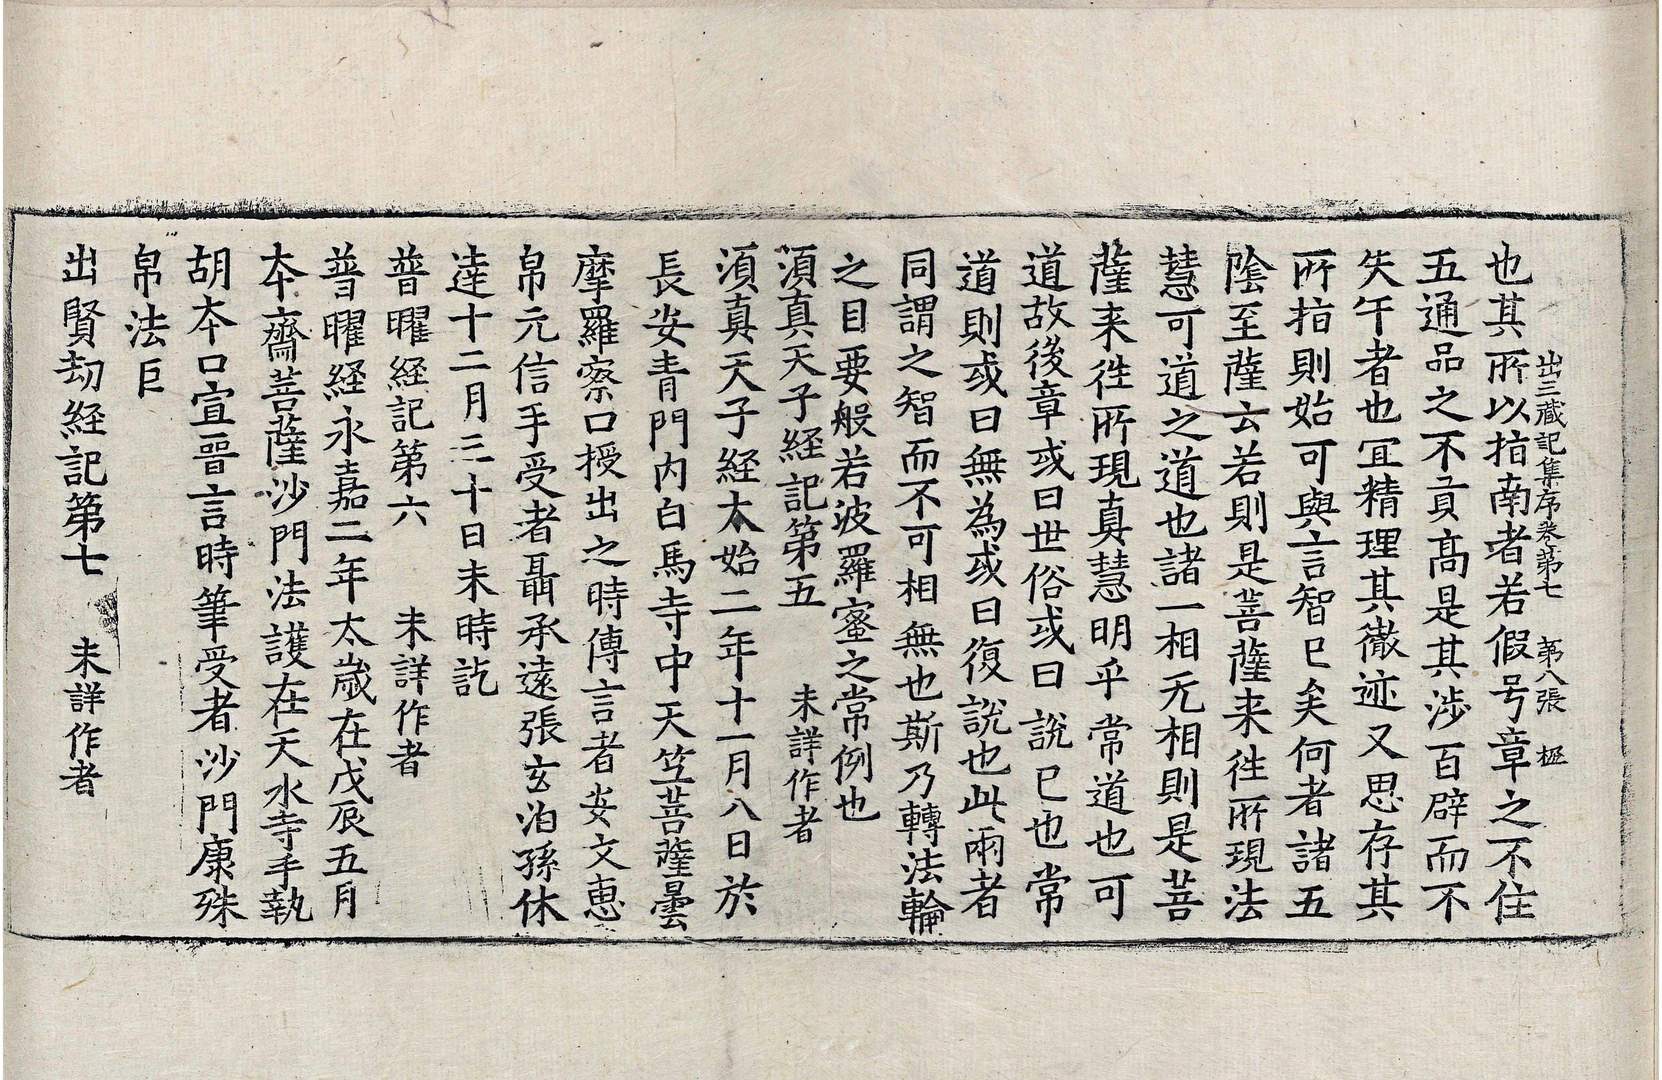 出三藏記集序卷第七 第八張
也其所以指南者若假号章之不住
五通品之不貢高是其涉百辟而不
失午者也冝精理其㣲迹又思存其
所指則始可與言智巳矣何者諸五
陰至薩云若則是菩薩来徃所現法
慧可道之道也諸一相无相則是菩
薩来徃所現真慧明乎常道也可
道故後章或曰世俗或曰說巳也常
道則或曰無為或曰復說也此兩者
同謂之智而不可相無也斯乃轉法輪
之目要般若波羅蜜之常例也
須真天子経記第五 未詳作者
須真天子経太始二年十一月八日於
長安青門内白馬寺中天竺菩薩曇
摩羅察口授出之時傳言者安文惠
帛元信手受者聶承遠張玄泊孫休
逹十二月三十日未時訖
普曜経記第六 未詳作者
普曜経永嘉二年太歲在戊辰五月
夲齋菩薩沙門法護在天水寺手執
胡夲口宣晉言時筆受者沙門康殊
帛法巨
出賢劫経記第七 未詳作者